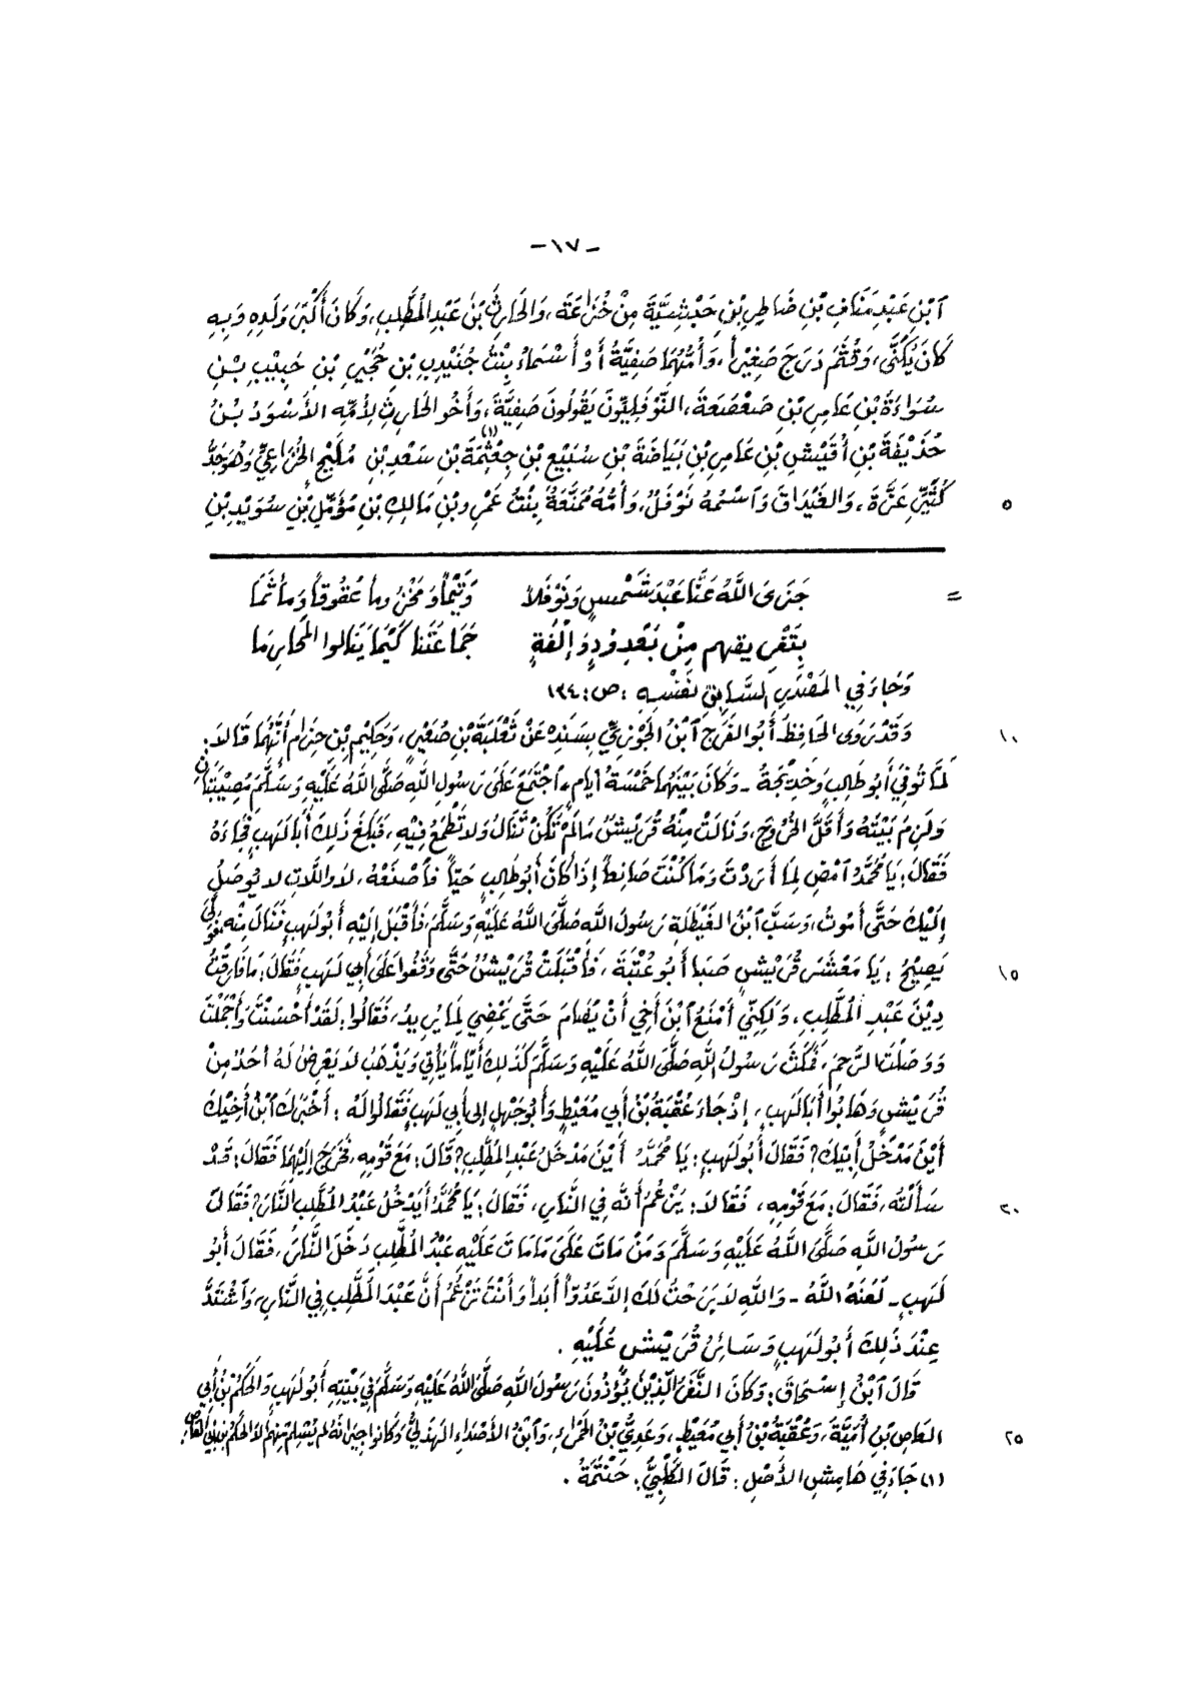 -١٧-
ٱبْنِ عَبْدِ مَنَافِ بْنِ ضَاطِرِ بْنِ حَبْشِيَّةَ مِنْ خُزَاعَةَ، وَالحَارِثُ بْنُ عَبْدِ المُطَّلِبِ، وَكَانَ أَكْبَرَ وَلَدِهِ وَبِهِ
كَانَ يُكَنَّى، وَقُثَمُ دَرَجَ صَغِيْراً، وَأُمُّهُمَا صَفِيَّةُ أَوْ أَسْمَاءُ بِنْتُ جُنَيْدِبِ بْنِ حُجَيْرِ بْنِ حَبِيْبِ بْنِ
سُوَاءَةَ بْنِ عَامِرِ بْنِ صَعْصَعَةَ، النَّوْفَلِيُّونَ يَقُولُونَ صَفِيَّةَ، وَأَخُو الحَارِثِ لِأُمِّهِ الأَسْوَدُ بْنُ
حُذَيْفَةَ بْنِ أُقَيْشِ بْنِ عَامِرِ بْنِ بَيَاضَةَ بْنِ سُبَيْعِ بْنِ جِعْثِمَةَ(١) بْنِ سَعْدِ بْنِ مُلَيْحٍ الخُزَاعِيِّ وَهُوَ جَدُّ
كُثَيِّرِ عَزَّةَ، وَالغَيْدَاقَ وَٱسْمُهُ نَوْفَلُ، وَأُمُّهُ مُمَنَّعَةُ بِنْتُ عَمْرِو بْنِ مَالِكِ بْنِ مُؤَمَّلِ بْنِ سُوَيْدِ بْنِ
٥
=
جَزَى اللَّهُ عَنَّا عَبْدَ شَمْسٍ وَنَوْفَلاً وَتَيْماً وَمَخْزُوماً عُقُوقاً وَمَأْثَمَا
بِتَفْرِيقِهِم مِنْ بَعْدِ وُدٍّ وَإِلْفَةٍ جَمَاعَتَنا كَيْمَا يَنَالوا المَحَارِمَا
وَجَاءَ فِي المَصْدَرِ السَّابِقِ نَفْسِهِ، ص: ١٣٤
وَقَدْ رَوَى الحَافِظُ أَبُو الفَرَجِ ٱبْنُ الجَوْزِيِّ بِسَنَدِهِ عَنْ ثَعْلَبَةَ بْنِ صُعَيْرٍ، وَحَكِيْمِ بْنِ حِزَامٍ أَنَّهُمَا قَالَا:
١٠
لَمَّا تُوُفِّيَ أَبُو طَالِبٍ وَخَدِيْجَةُ - وَكَانَ بَيْنَهُمَا خَمْسَةُ أَيَّامٍ - ٱجْتَمَعَ عَلَى رَسُولِ اللَّهِ صَلَّى اللَّهُ عَلَيْهِ وَسَلَّمَ مُصِيْبَتَانِ
وَلَزِمَ بَيْتَهُ وَأَقَلَّ الخُرُوجَ، وَنَالَتْ مِنْهُ قُرَيْشٌ مَا لَمْ تَكُنْ تَنَالُ وَلَا تَطْمَعُ فِيْهِ، فَبَلَغَ ذَلِكَ أَبَا لَهَبٍ فَجَاءَهُ
فَقَالَ: يَا مُحَمَّدُ ٱمْضِ لِمَا أَرَدْتَ وَمَا كُنْتَ صَانِعاً إِذَا كَانَ أَبُو طَالِبٍ حَيّاً فَٱصْنَعْهُ، لَا وَاللَّاتِ لَا يُوصَلُ
إِلَيْكَ حَتَّى أَمُوتُ، وَسَبَّ ٱبْنُ الغَيْطَلَةِ رَسُولَ اللَّهِ صَلَّى اللَّهُ عَلَيْهِ وَسَلَّمَ، فَأَقْبَلَ إِلَيْهِ أَبُو لَهَبٍ فَنَالَ مِنْهُ، فَوَلَّى
يَصِيْحُ: يَا مَعْشَرَ قُرَيْشٍ صَبَا أَبُو عُتْبَةَ، فَأَقْبَلَتْ قُرَيْشٌ حَتَّى وَقَفُوا عَلَى أَبِي لَهَبٍ فَقَالَ: مَا فَارَقْتُ
١٥
دِيْنَ عَبْدِ المُطَّلِبِ، وَلَكِنِّي أَمْنَعُ ٱبْنَ أَخِي أَنْ يُضَامَ حَتَّى يَمْضِي لِمَا يُرِيدُ، فَقَالُوا: لَقَدْ أَحْسَنْتَ وَأَجْمَلْتَ
وَوَصَلْتَ الرَّحِمَ، فَمَكَثَ رَسُولُ اللَّهِ صَلَّى اللَّهُ عَلَيْهِ وَسَلَّمَ كَذَلِكَ أَيَّاماً يَأْتِي وَيَذْهَبُ لَا يَعْرِضُ لَهُ أَحَدٌ مِنْ
قُرَيْشٍ وَهَابُوا أَبَا لَهَبٍ، إِذْ جَاءَ عُقْبَةُ بْنُ أَبِي مُعَيْطٍ وَأَبُو جَهْلٍ إِلَى أَبِي لَهَبٍ فَقَالُوا لَهُ: أَخْبَرَكَ ٱبْنُ أَخِيْكَ
أَيْنَ مَدْخَلُ أَبِيْكَ؟ فَقَالَ أَبُو لَهَبٍ: يَا مُحَمَّدُ أَيْنَ مَدْخَلُ عَبْدِ المُطَّلِبِ؟ قَالَ: مَعَ قَوْمِهِ، فَخَرَجَ إِلَيْهِمَا فَقَالَ: قَدْ
سَأَلْتُهُ، فَقَالَ: مَعَ قَوْمِهِ، فَقَالَا: يَزْعُمُ أَنَّهُ فِي النَّارِ، فَقَالَ: يَا مُحَمَّدُ أَيَدْخُلُ عَبْدُ المُطَّلِبِ النَّارَ؟ فَقَالَ
٢٠
رَسُولُ اللَّهِ صَلَّى اللَّهُ عَلَيْهِ وَسَلَّمَ وَمَنْ مَاتَ عَلَى مَا مَاتَ عَلَيْهِ عَبْدُ المُطَّلِبِ دَخَلَ النَّارَ، فَقَالَ أَبُو
لَهَبٍ - لَعَنَهُ اللَّهُ - وَاللَّهِ لَا بَرَحْتُ لَكَ إِلَّا عَدُوّاً أَبَداً وَأَنْتَ تَزْعُمُ أَنَّ عَبْدَ المُطَّلِبِ فِي النَّارِ، وَٱشْتَدَّ
عِنْدَ ذَلِكَ أَبُو لَهَبٍ وَسَائِرُ قُرَيْشٍ عَلَيْهِ.
قَالَ ٱبْنُ إِسْحَاقَ: وَكَانَ النَّفَرُ الَّذِيْنَ يُؤْذُونَ رَسُولَ اللَّهِ صَلَّى اللَّهُ عَلَيْهِ وَسَلَّمَ فِي بَيْتِهِ أَبُو لَهَبٍ وَالحَكَمُ بْنُ أَبِي
العَاصِ بْنِ أُمَيَّةَ، وَعُقْبَةُ بْنُ أَبِي مُعَيْطٍ، وَعَدِيُّ بْنُ الحَمْرَاءِ، وَٱبْنُ الأَصْدَاءِ الهُذَلِيُّ وَكَانُوا جِيرَانَهُ لَمْ يُسْلِمْ مِنْهُم إِلَّا الحَكَمُ بْنُ أَبِي العَاصِ.
٢٥
(١) جَاءَ فِي هَامِشِ الأَصْلِ: قَالَ الكَلْبِيُّ: حَنْتَمَةُ.